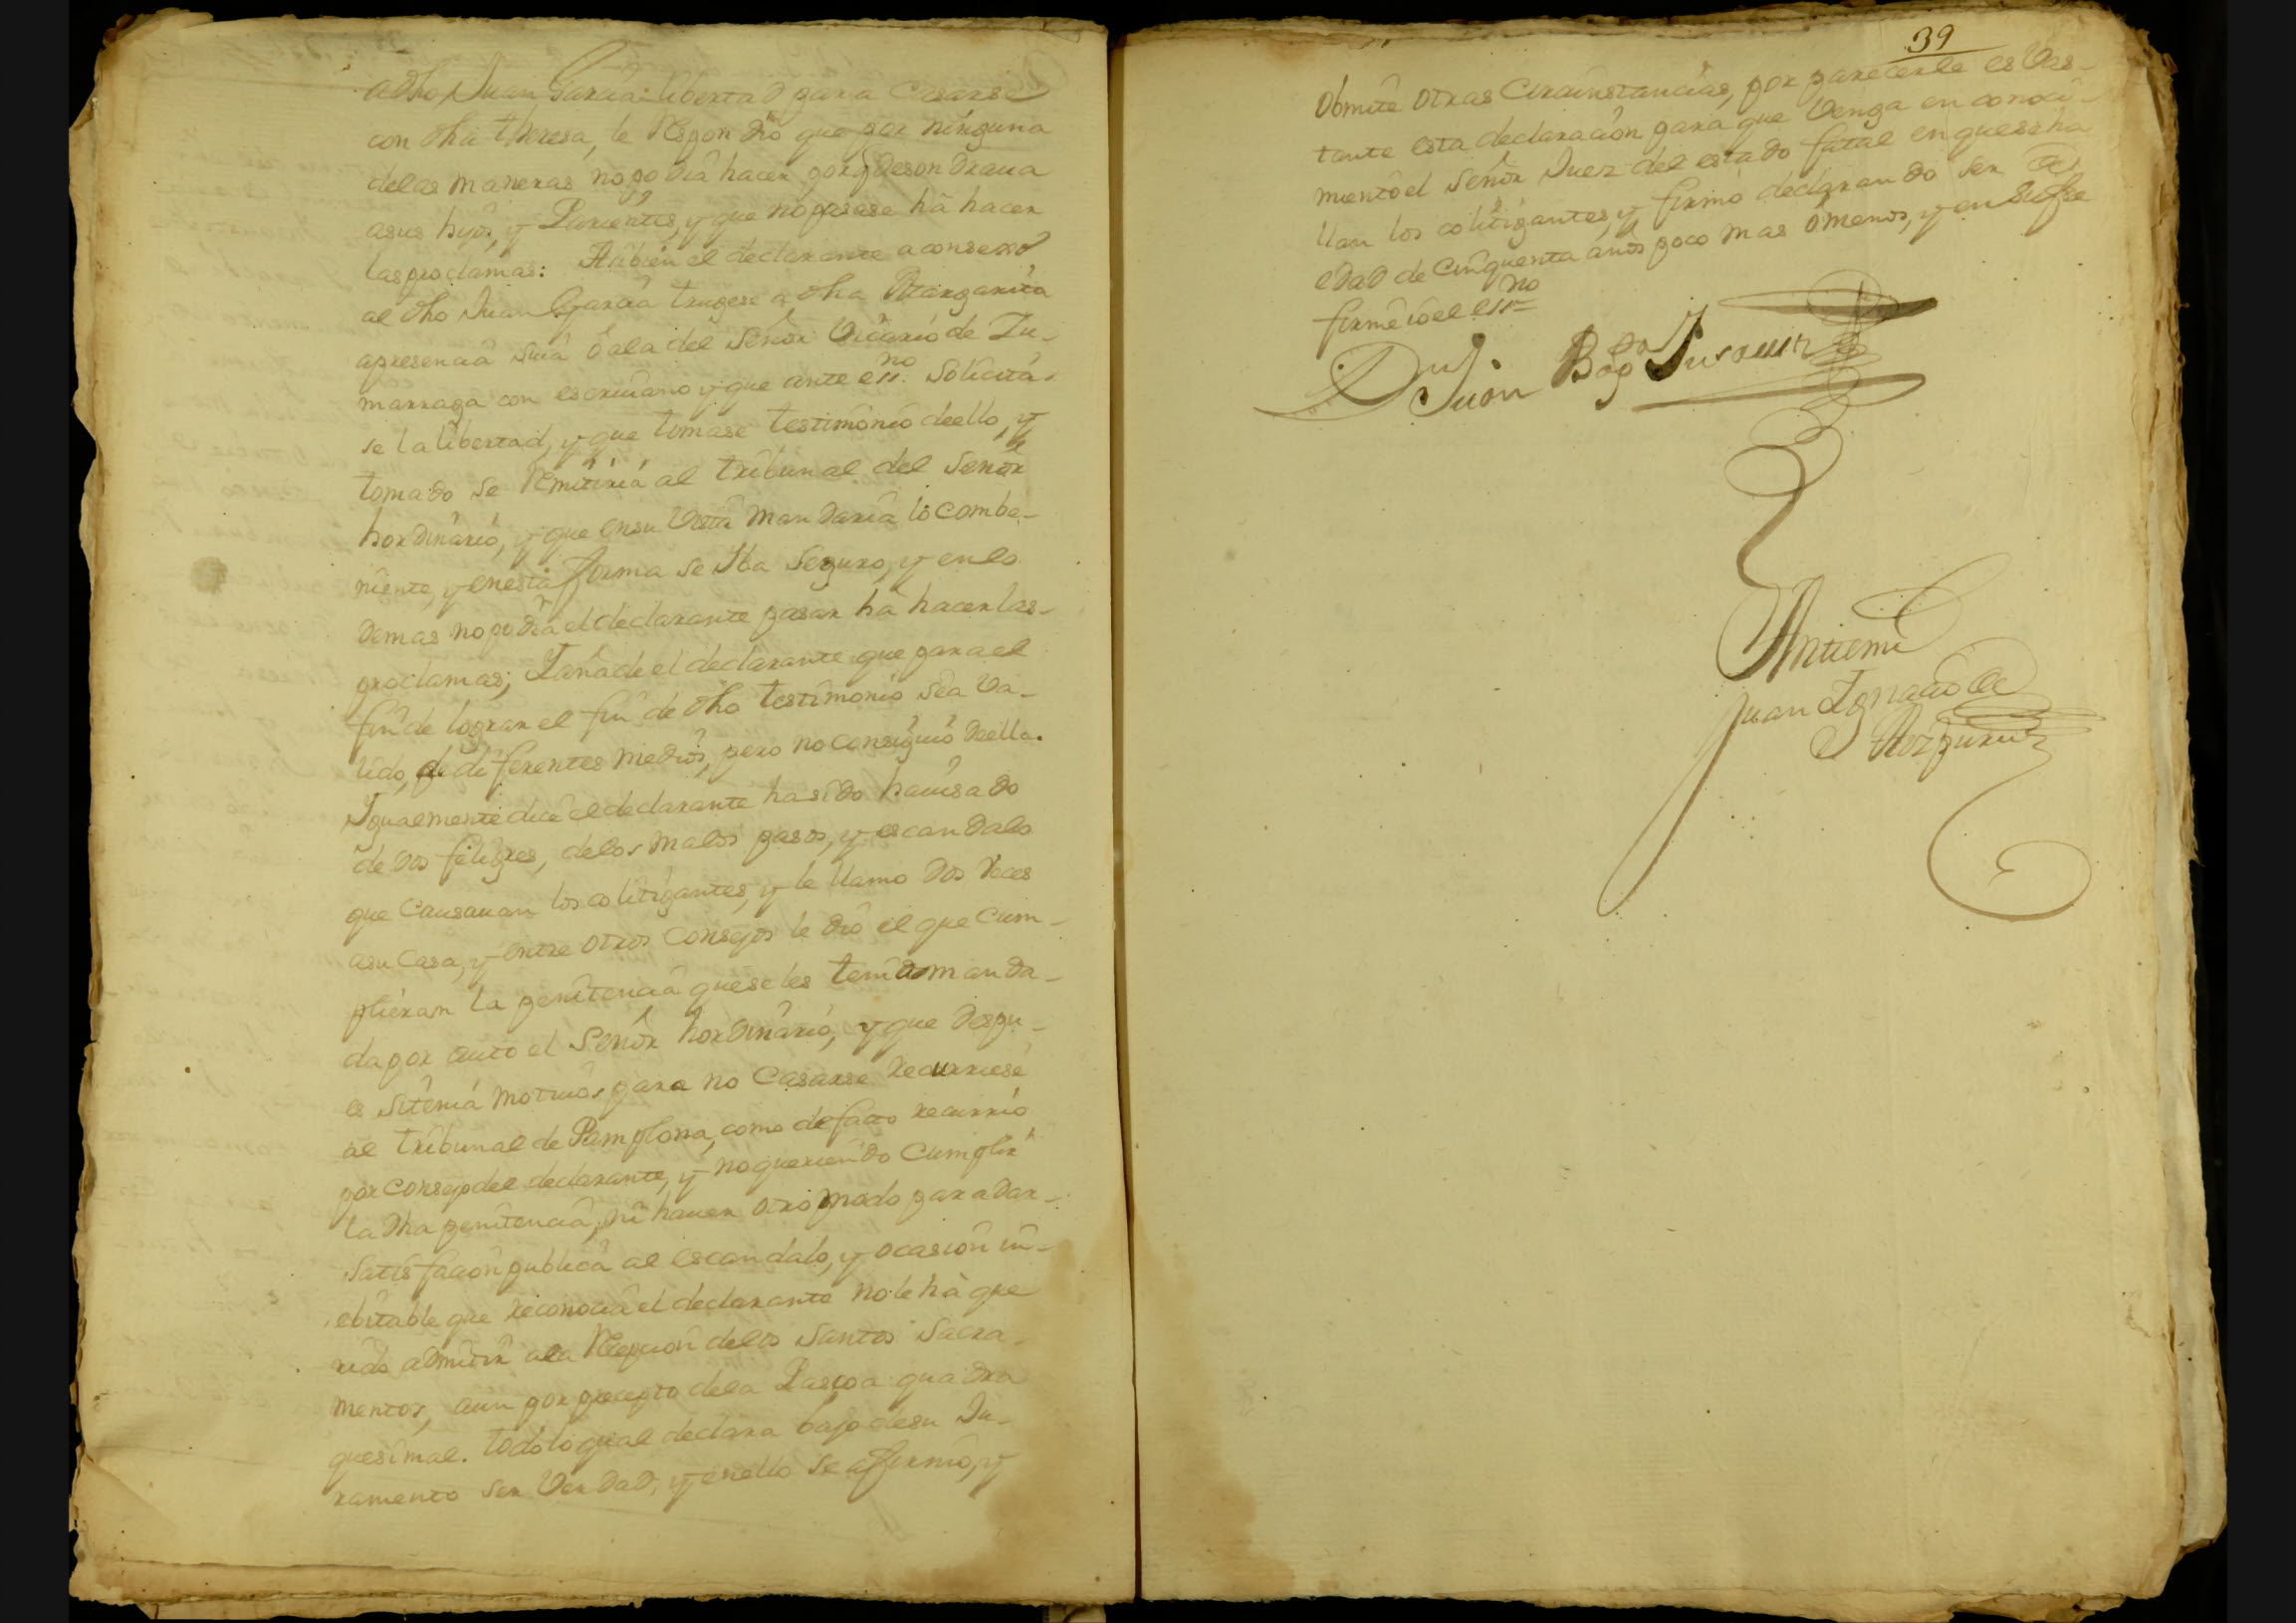 adho Juan Garcia libertad para Casarse
con dha theresa, le Respondio que por ninguna
delas maneras nopodia hacer porq desondraua
asus hijos, y Parientes, y que nopasase hà hacer
lasproclamas: Aubien el declarante aconsexò
al dho Juan Garcia trugese a dha Margarita
apresencia suia ò ala del Señor Vicario de Zu-
marraga con escriuano y que ante essno. Solicita-
se la libertad, y que tomase testimonio deello, y
tomado se Remitiria al tribunal del Señor
hordinario, y que ensu Vista mandaria lo combe-
niente, y enesta forma se Iba Seguro, y enlo
demas nopodia el declarante pasar hà hacerlas-
proclamas; Yañade el declarante que para el
fin de lograr el fin de dho testimonio sea Va-
lido, de diferentes medios, pero no consiguió deella.
Igualmente dice el declarante hasido hauisado
de dos feligres, delos malos pasos, y escandalo
que Causauan los colitigantes, y le llamo dos Veces
asu Casa, y entre otros Consejos le dio el que Cum-
plieran la penitencia quese les tenia manda-
da por auto el Señor hordinario, y que despu-
es Sitenia motiuos para no Casarse recurriese
al tribunal de Pamplona, como defacto recurrio
por Consejo del declarante, y noqueriendo Cumplir
la dha penitencia, ni hauer otro modo para dar-
satisfacion publica al escandalo, y ocasion in-
ebitable que reconocia el declarante nole hà que
rido admitir ala Repcion delos Santos Sacra-
mentos, aun por precepto dela Pascoa quadra
quesimal. todo lo qual declara bajo desu Ju-
ramento ser Verdad, y enello se afirmo, y
39
Obmite otras Circunstancias, por parecerle es Vas-
tante esta declaracion para que Venga en conoci-
miento el Señor Juez del estado fatal en quese ha
llan los colitigantes, y firmò declarando ser de
edad de Cinquenta años poco mas ò menos, y en su fee
firmè io el essno
Dn Juan Bapta
Antemi
Juan Ignacio de
Azpiruz